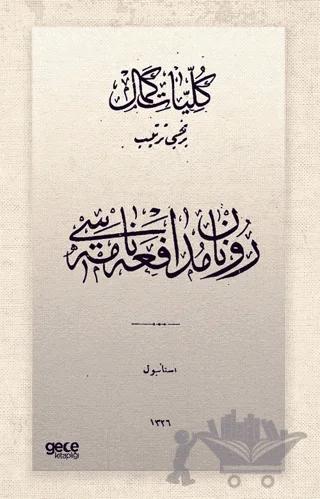 كلیات كمال
برنجی ترتیب
رنان مدافعه نامه سی
استانبول
١٣٢٦
gece
kitaplığı